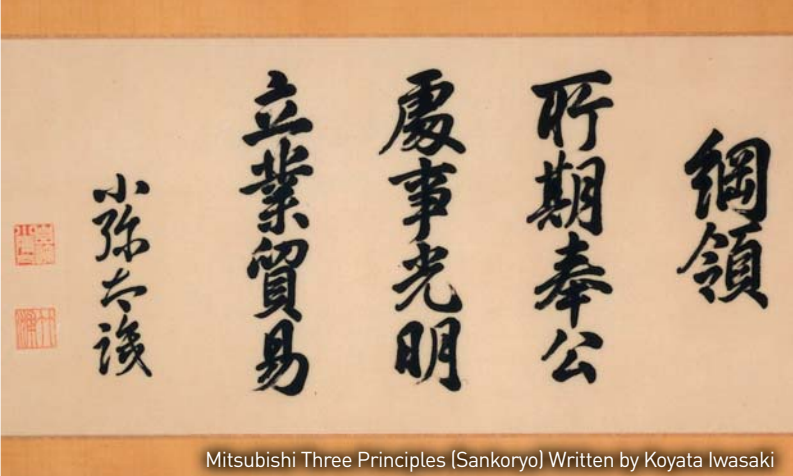 綱領
所期奉公
處事光明
立業貿易
小弥太識
Mitsubishi Three Principles (Sankoryo) Written by Koyata Iwasaki